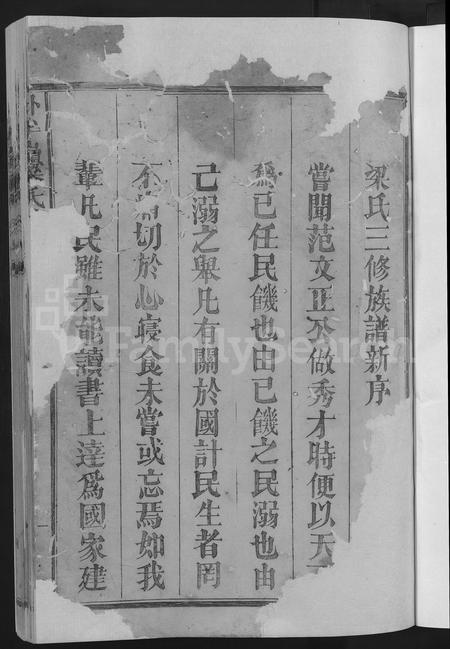 梁氏三修族譜新序
嘗聞范文正公做秀才時便以天下
為己任民饑也由己饑之民溺也由
己溺之舉凡有關於國計民生者罔
不切於心寢食未嘗或忘焉如我
輩凡民雖未能讀書上達為國家建
FamilySearch